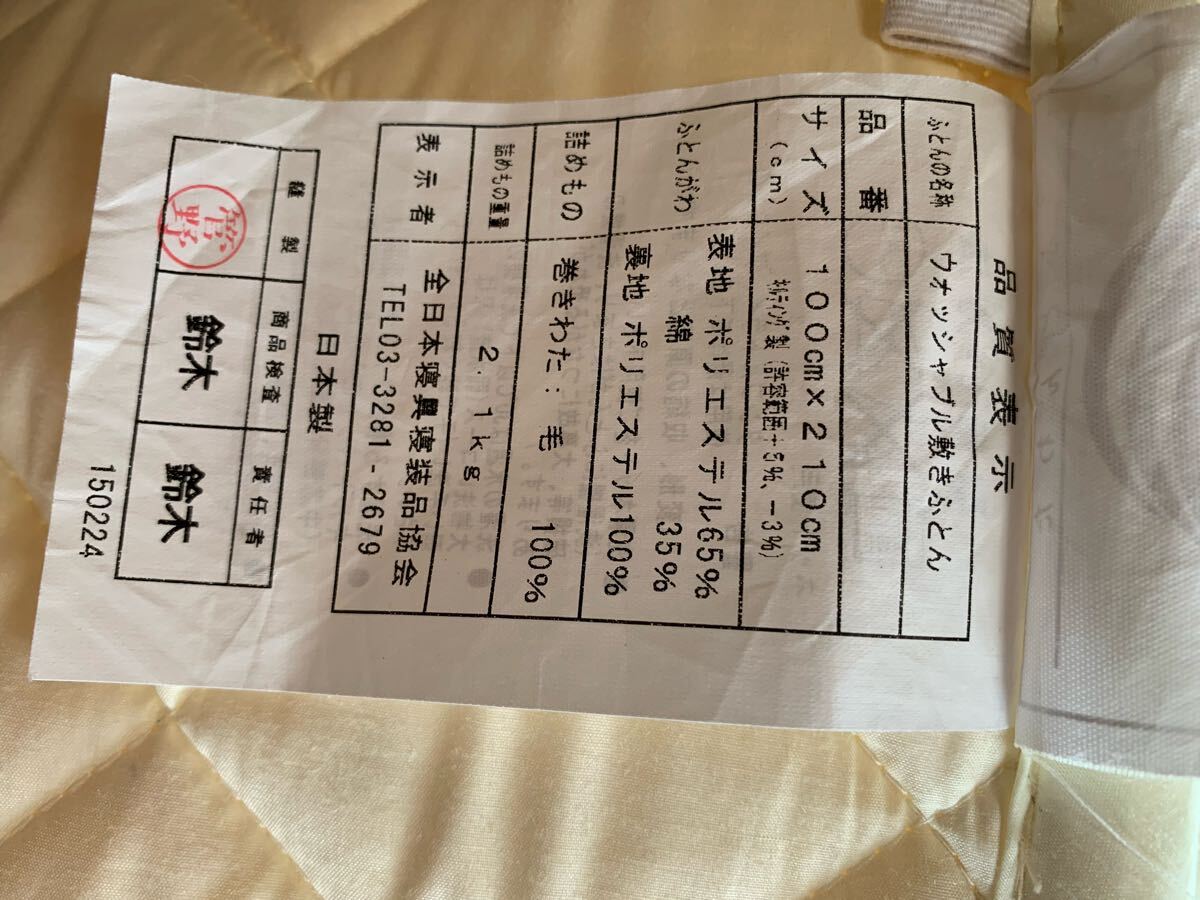 品質表示
ふとんの名称 ウォッシャブル敷きふとん
品番
サイズ(cm) 100cm×210cm
キルティング製(許容範囲+5%、-3%)
ふとんがわ 表地 ポリエステル65%
綿 35%
裏地 ポリエステル100%
詰めもの 巻きわた:毛 100%
詰めもの重量 2.1kg
表示者 全日本寝具寝装品協会
TEL03-3281-2679
日本製
縫製 商品検査 責任者
菅野 鈴木 鈴木
150224